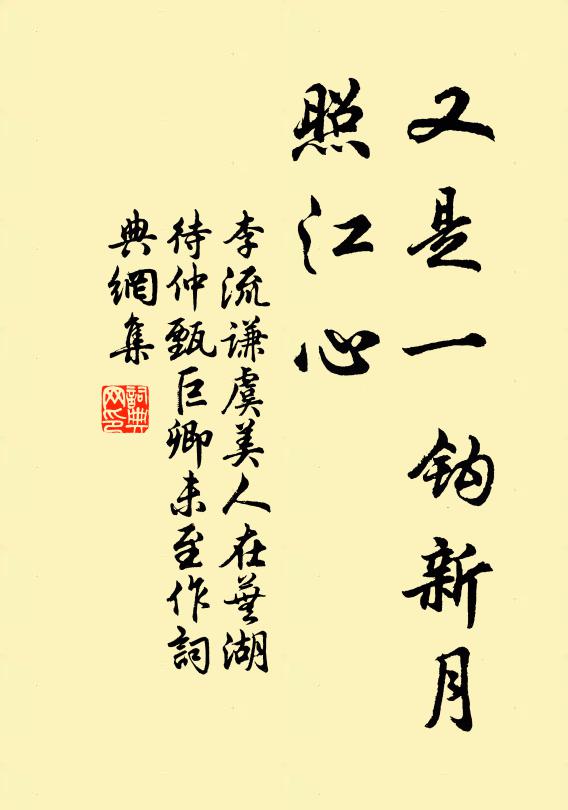 又是一鈎新月
照江心
李流谦虞美人在蕪湖
待仲甄巨卿未至作詞
典網集
詞典
网印